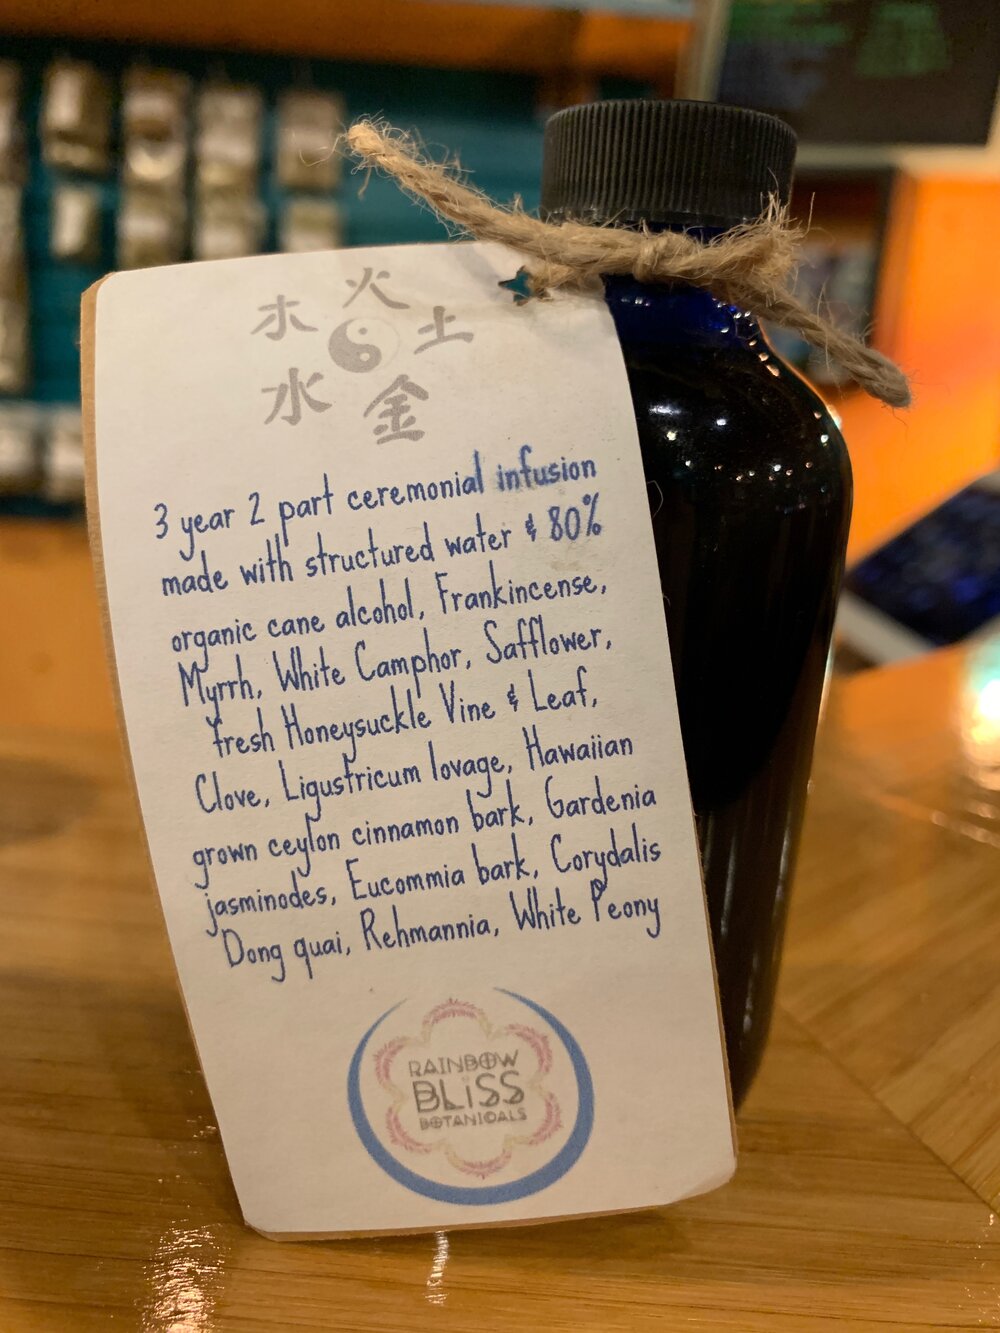 火
木 土
水 金
3 year 2 part ceremonial infusion
made with structured water & 80%
organic cane alcohol, Frankincense,
Myrrh, White Camphor, Safflower,
fresh Honeysuckle Vine & Leaf,
Clove, Ligustricum lovage, Hawaiian
grown ceylon cinnamon bark, Gardenia
jasminodes, Eucommia bark, Corydalis
Dong quai, Rehmannia, White Peony
RAINBOW
BLiSS
BOTANICALS